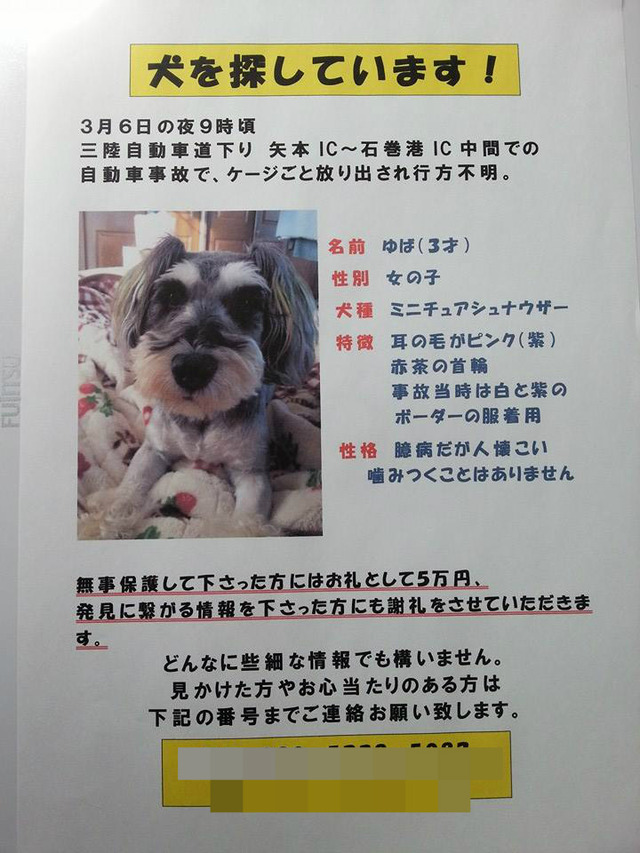 犬を探しています!
3月6日の夜9時頃
三陸自動車道下り 矢本IC~石巻港IC中間での
自動車事故で、ケージごと放り出され行方不明。
名前 ゆば(3才)
性別 女の子
犬種 ミニチュアシュナウザー
特徴 耳の毛がピンク(紫)
赤茶の首輪
事故当時は白と紫の
ボーダーの服着用
性格 臆病だが人懐こい
噛みつくことはありません
無事保護して下さった方にはお礼として5万円、
発見に繋がる情報を下さった方にも謝礼をさせていただきま
す。
どんなに些細な情報でも構いません。
見かけた方やお心当たりのある方は
下記の番号までご連絡お願い致します。
FUJITSU